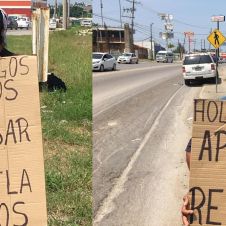 GOS
OS
BAR
TLA
OS
HOL
AP
RE